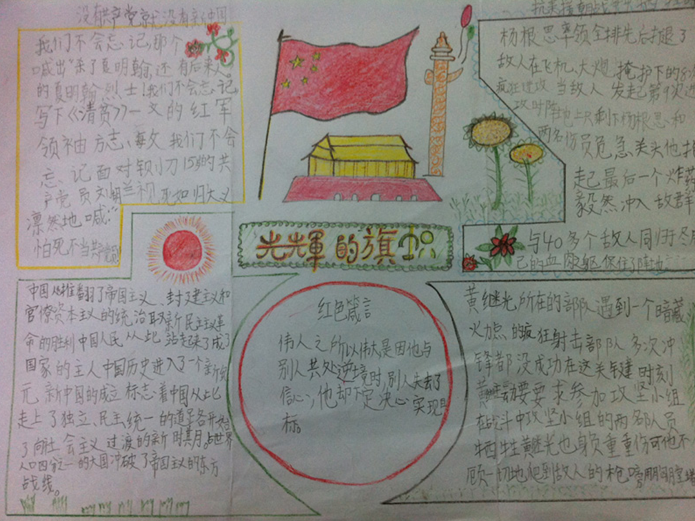 没有共产党就没有新中国
我们不会忘记,那个
喊出"杀了夏明翰,还有后来人"
的夏明翰烈士!我们不会忘记,
写下《清贫》一文的红军
领袖方志敏。我们不会
忘记面对铡刀15岁的共
产党员刘胡兰,视死如归大义
凛然地喊:
怕死不当共产党
抗美援朝战
杨根思率领全排先后击退了
敌人在飞机、大炮掩护下的
疯狂进攻当敌人发起第9次进
攻时阵地上只剩下杨根思和
两名伤员危急关头他抱
起最后一个炸药
毅然冲入敌群
与40多个敌人同归于尽用
己的血肉躯保住了阵地
光辉的旗帜
中国推翻了帝国主义、封建主义和
官僚资本主义的统治取新民主主义革
命的胜利中国人民从此站起来了成了
国家的主人中国历史进入了一个新纪
元,新中国的成立标志着中国从此
走上了独立、民主、统一的道路,各开始
了向社会主义过渡的新时期,占世界
人口四分之一的大国冲破了帝国主义的东方
战线。
红色箴言
伟人之所以伟大,是因他与
别人共处逆境时,别人失去了
信心,他却下定决心实现目
标。
黄继光所在的部队遇到一个暗藏
火点的疯狂射击部队多次冲
锋都没成功在这关键时刻
黄继光要求参加攻坚小组
战斗中攻坚小组的两名队员
牺牲黄继光也身负重伤可他不
顾一切地爬到敌人的枪